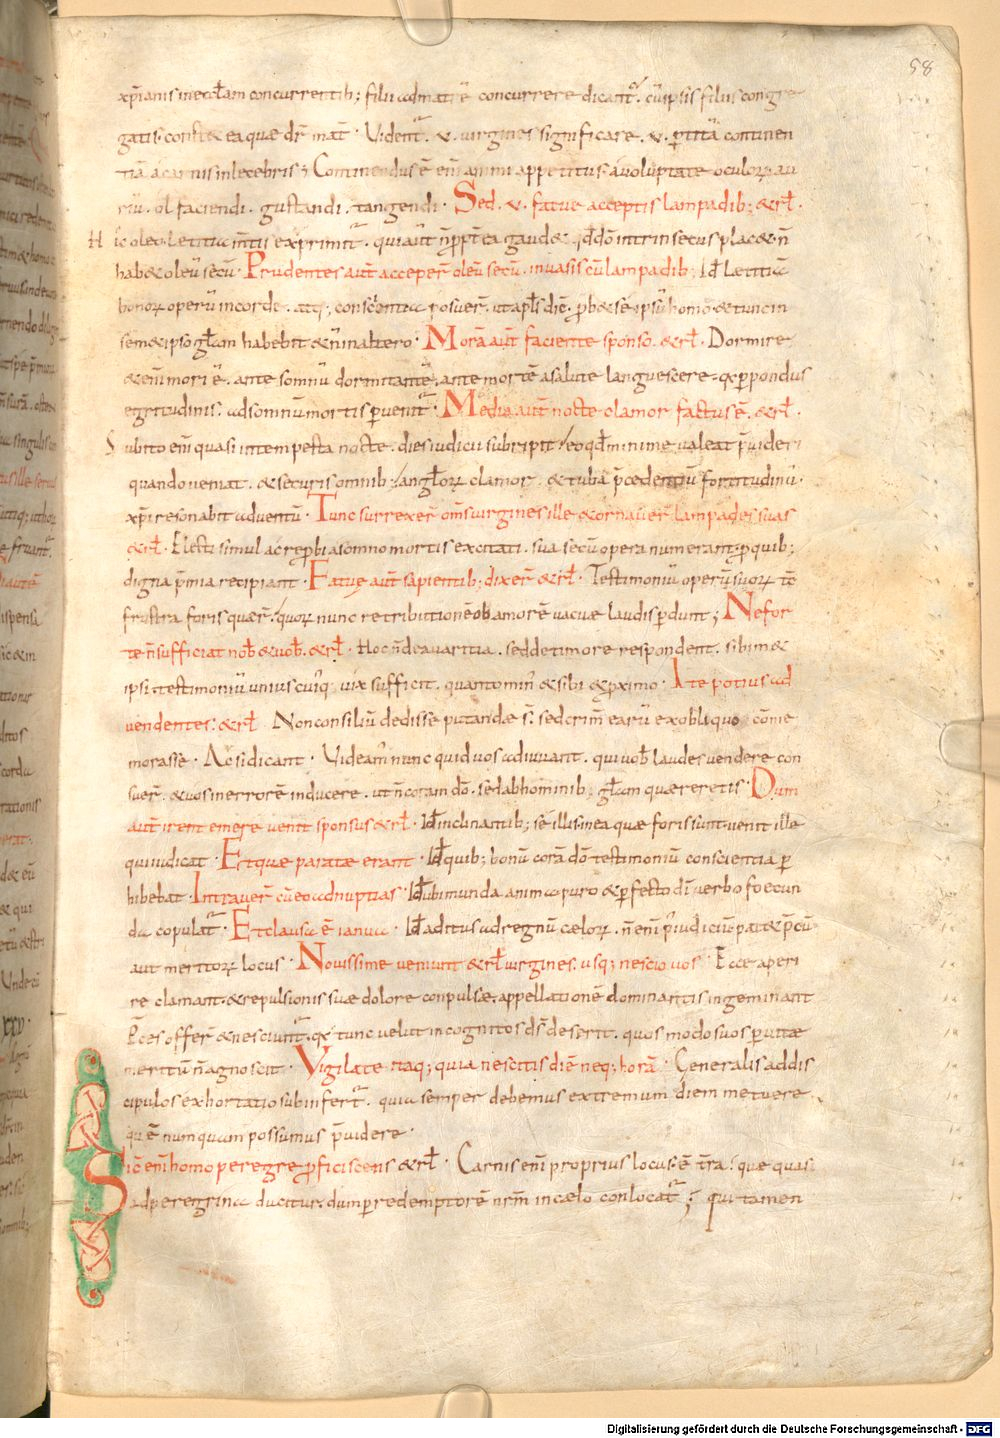 58
xp̄ianis in eccl̄am concurrentib; filii ad matrē concurrere dicant᷑. cū ipsis filiis congre
gatis. constet ea quae dr̄ mat̄. Vident᷑ .v. virgines significare .v. ptitā continen
tiā a carnis inlecebris; Continendus ē enī animi appetitus. a voluptate oculoꝝ. au
riū. ol faciendi. gustandi. tangendi. Sed .v. fatuae acceptis lampadib; &rl̄.
Hic oleo Letitia m̄tis exprimit᷑. qui aut̄ n̄ ꝓpt̄ ea gaud&. qd̄ dō intrinsecus plac&. n̄
hab& oleū secū. Prudentes aut̄ acceper̄ oleū secū. in vasis cū lampadib; Id̄ Letitiā
bonoꝝ operū in corde. atq; conscientia posuer̄. ut apl̄s dic̄. ꝓb& sē ipsū homo & tunc in
sem& ipso gl̄am habebit & n̄ in altero. Morā aut̄ faciente sponso. &rl̄. Dormire
& enī mori ē. ante somnū dormitant̄. ante mortē a salute languescere. qꝛ p pondus
egritudinis. ad somnum mortis puenit᷑. Media aut̄ nocte clamor factus ē. &rl̄.
Subito enī quasi intempesta nocte. dies iudicii subripit eo qd̄ minime valeat p̄videri
quando veniat. & securis omnib; angl̄oꝝ clamor. & tuba p̄cedentiū fortitudinū.
xp̄i resonabit adventū. Tunc surrexer̄ om̄s virgines ille & ornaver̄ lampades suas
&rl̄. Electi simul ac reꝓbi a somno mortis excitati. sua secū opera numerant. ꝓ quib;
digna p̄mia recipiant. Fatuae aut̄ sapientib; dixer̄ &rl̄. Testimoniū operū suoꝝ tc̄
frustra foris quaer̄. quoꝝ nunc retributionē ob amorē vacuae laudis pdunt; Ne for
te n̄ sufficiat nob̄ & vob̄. &rl̄. Hoc n̄ de avaritia. sed de timore respondent. sibim&
ipsi. testimoniū unius cuiꝗ; vix sufficit. quanto min᷒ & sibi & pximo. Ite potius ad
vendentes. &rl̄ Non consiliū dedisse putandae s̄. sed crim̄ earū ex obliquo com̄e
morasse. Ac si dicant. Videam᷒ nunc quid vos adiuvant. qui vob̄ laudes vendere con
suer̄. & vos in errorē inducere. ut n̄ coram dō. sed ab hominib; gl̄am quaereretis. Dum
aut̄ irent emere venit sponsus &rl̄. Id̄ inclinantib; sē illis in ea quae foris sunt. venit ille
qui iudicat. Et quae paratae erant. Id̄ quib; bonū corā dō testimoniū conscientia p
hibebat. Intraver̄ cū eo ad nuptias. Id̄ ubi munda anima puro & pfecto dī verbo foecun
da copulat᷑. Et clausa ē ianua. Id̄ aditus ad regnū caeloꝝ. n̄ enī p᷒ iudiciū pat& p̄cū
aut meritoꝝ locus. Novissime veniunt &rl̄ virgines. usq; nescio vos. Ecce aperi
re clamant. & repulsionis suae dolore conpulsae. appellationē dominantis ingeminant
P̄ces offer̄ & nesciunt᷑. qꝛ tunc velut incognitos ds̄ deserit. quos modo suos p vitae
meritū n̄ agnoscit. Vigilate itaq; quia nescitis diē neq; horā. Generalis ad dis
cipulos exhortatio subinfert᷑. quia semper debemus extremum diem metuere.
quē numquam possumus p̄videre.
Sic enī homo peregre ꝓficiscens &rl̄. Carnis enī proprius locus. ē t̄ra. quae quasi
ad peregrina ducitur. dum p redemptorē nr̄m in caelo conlocat᷑; qui tamen
Digitalisierung gefördert durch die Deutsche Forschungsgemeinschaft - DFG